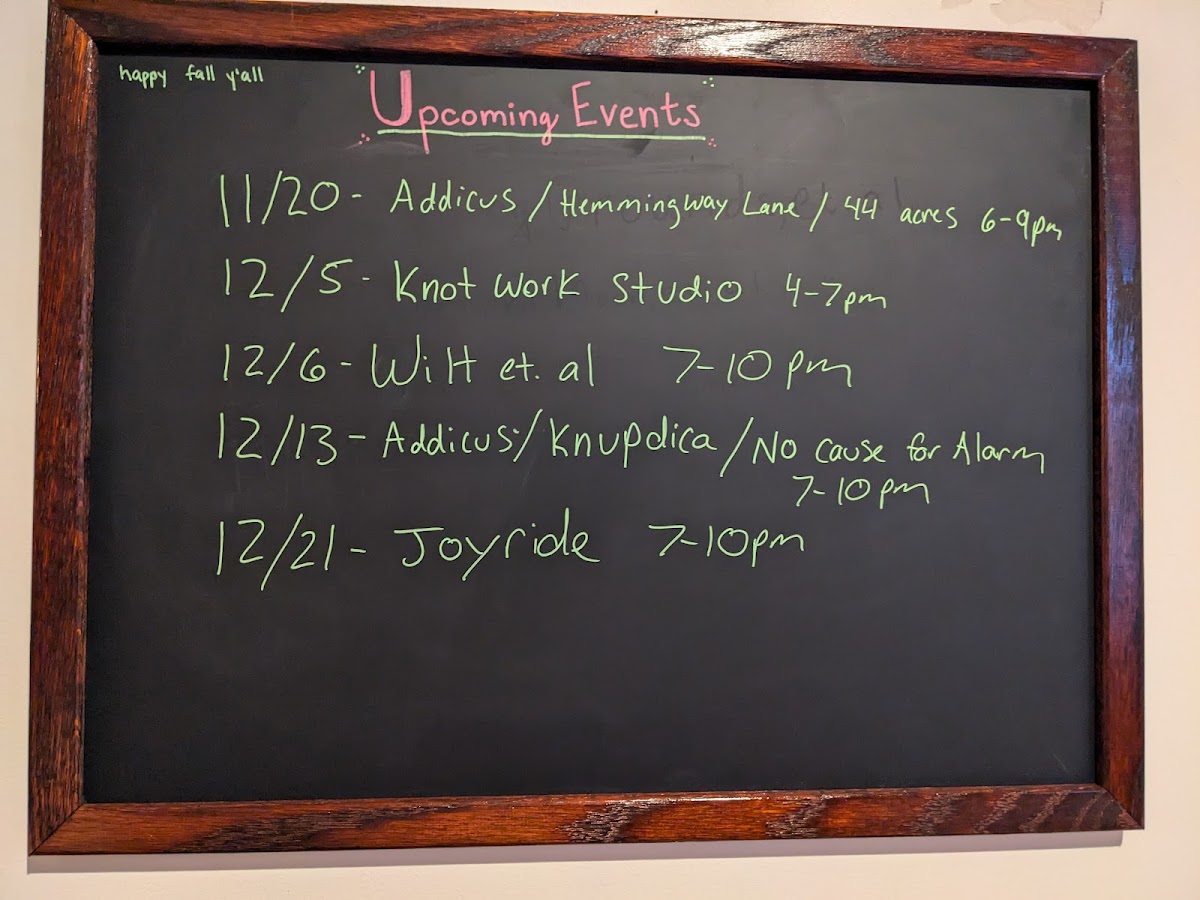 happy fall y'all
Upcoming Events
11/20 - Addicus / Hemmingway Lane / 44 acres 6-9pm
12/5 - Knot Work Studio 4-7pm
12/6 - Wilt et. al 7-10 pm
12/13 - Addicus / Knupdica / No cause for Alarm
7-10 pm
12/21 - Joyride 7-10pm